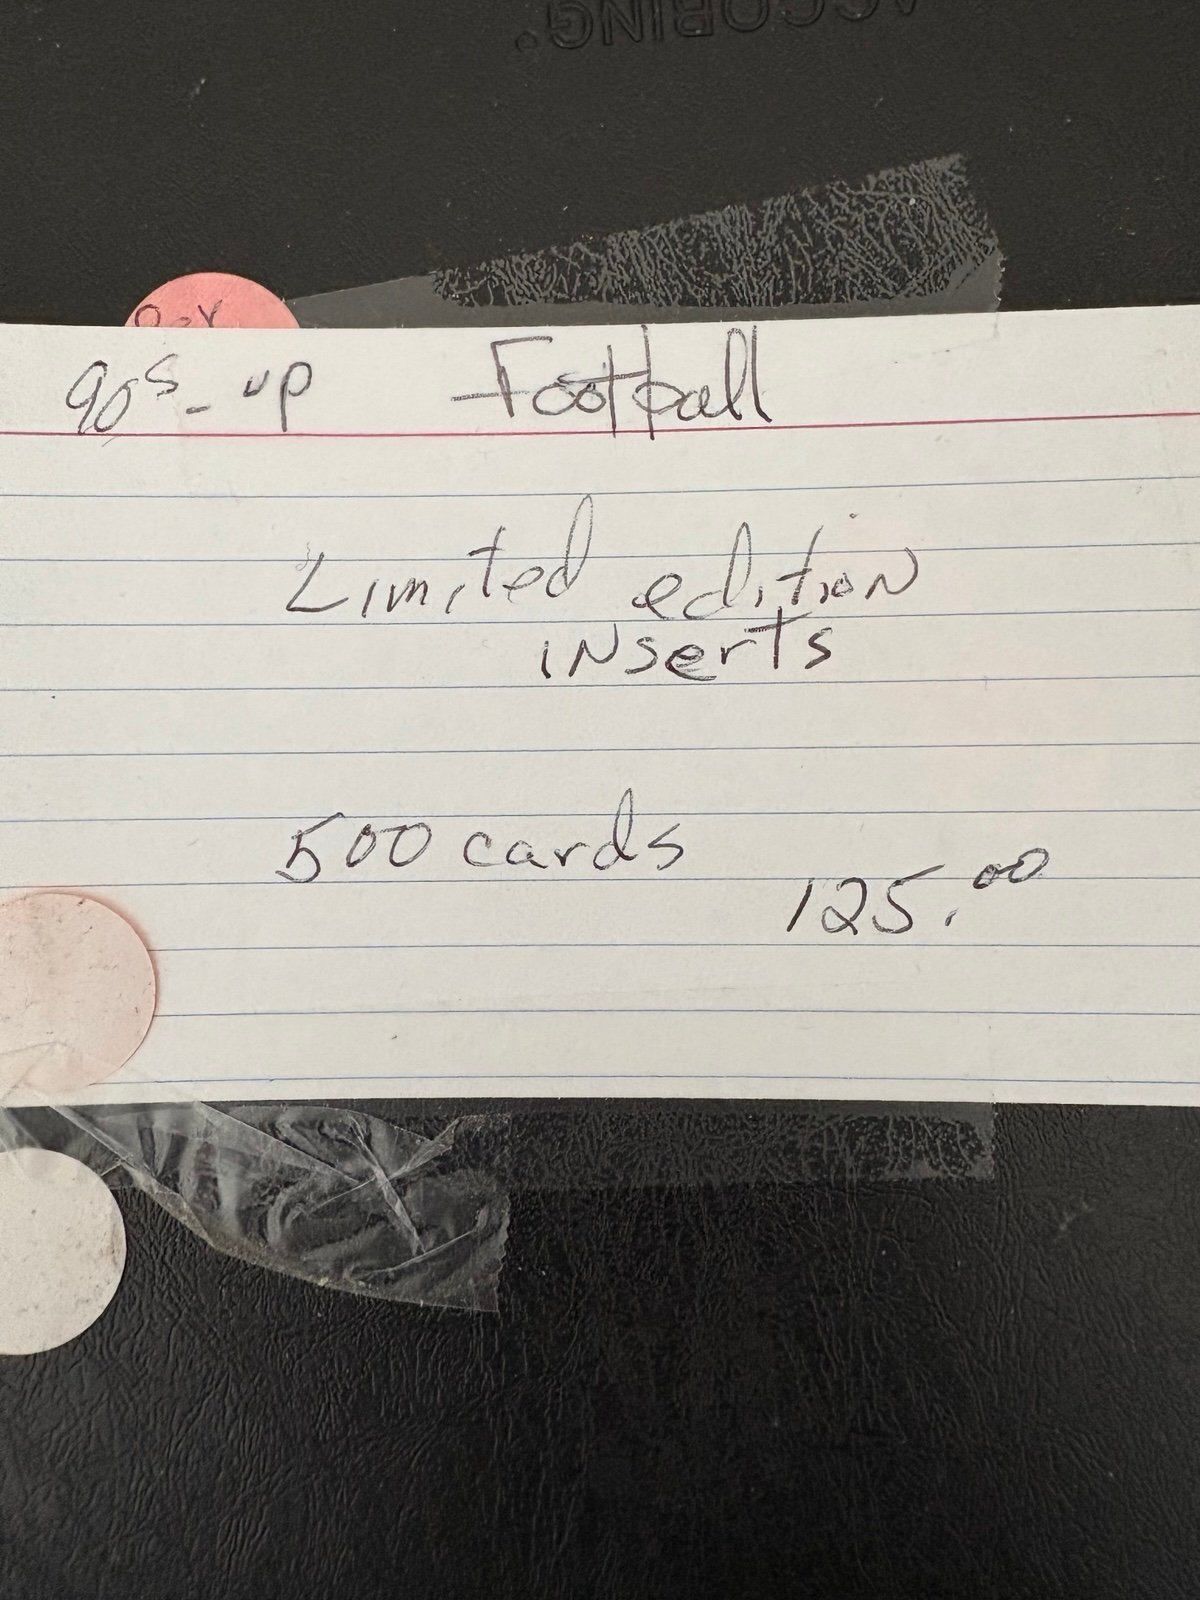 ACCOBING®
90s - up Football
Limited edition
inserts
500 cards
125.00